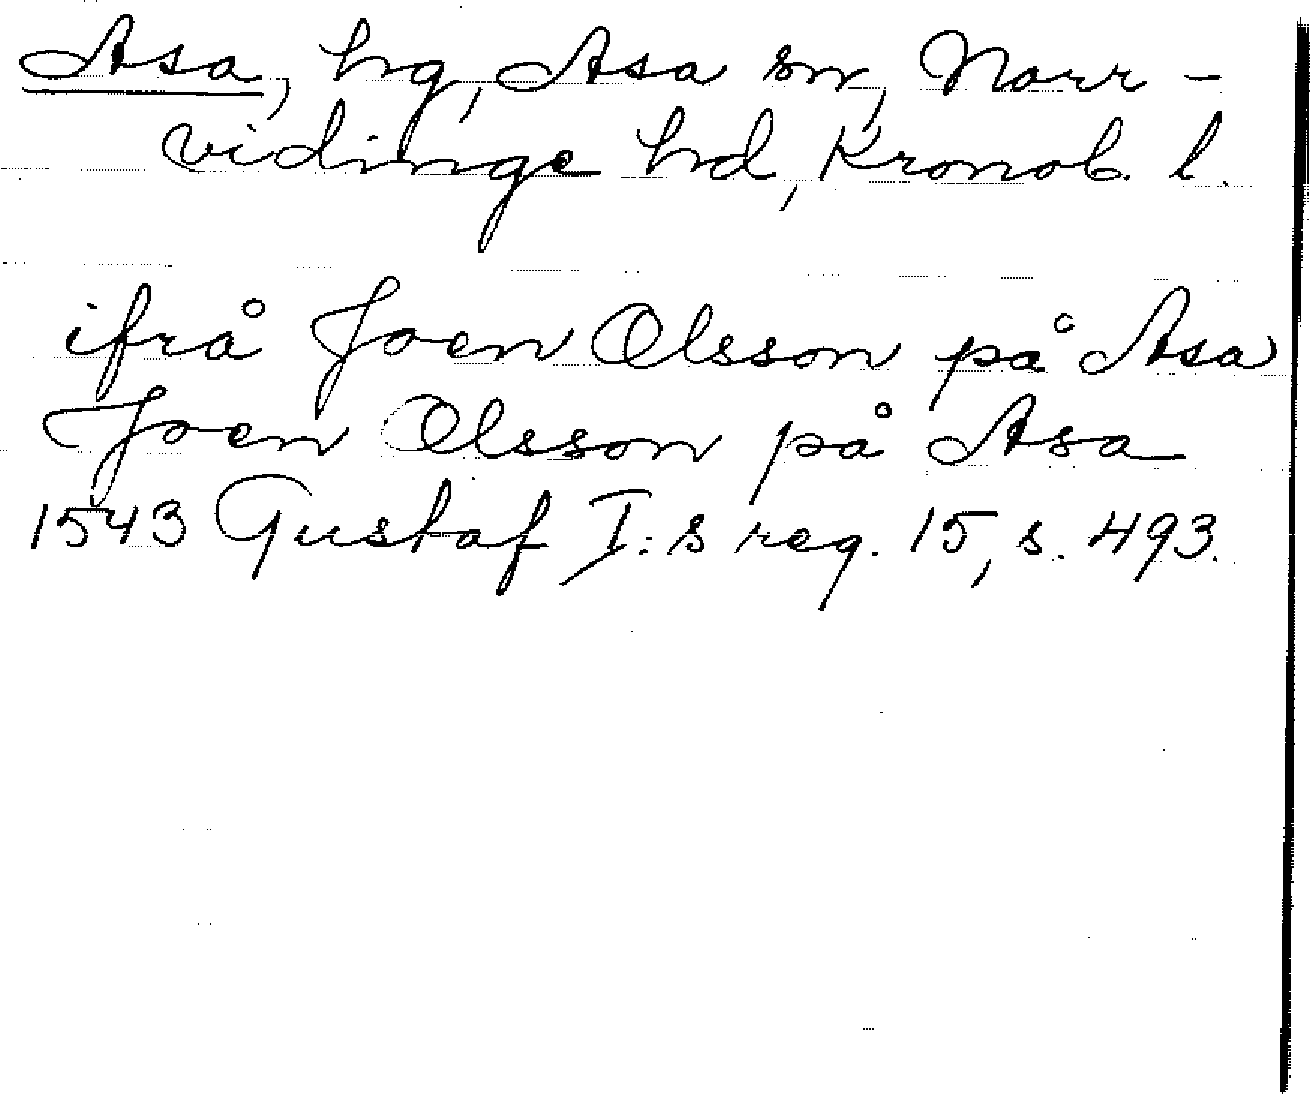 Asa, hg, Asa sn, Norr-
vidinge hd, Kronob. l.
ifrå Joen Olsson på Asa
Joen Olsson på Asa
1543 Gustaf I:s reg. 15, s. 493.